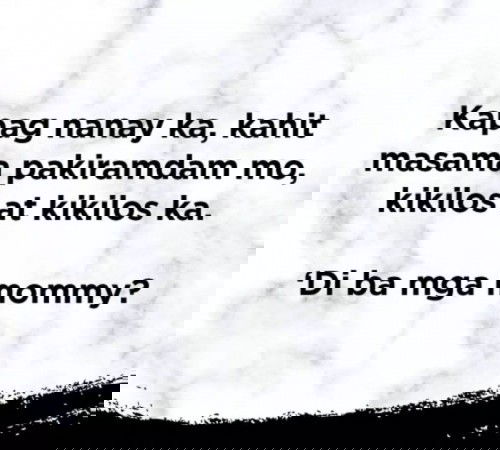 Kapag nanay ka, kahit
masama pakiramdam mo,
kikilos at kikilos ka.
'Di ba mga mommy?